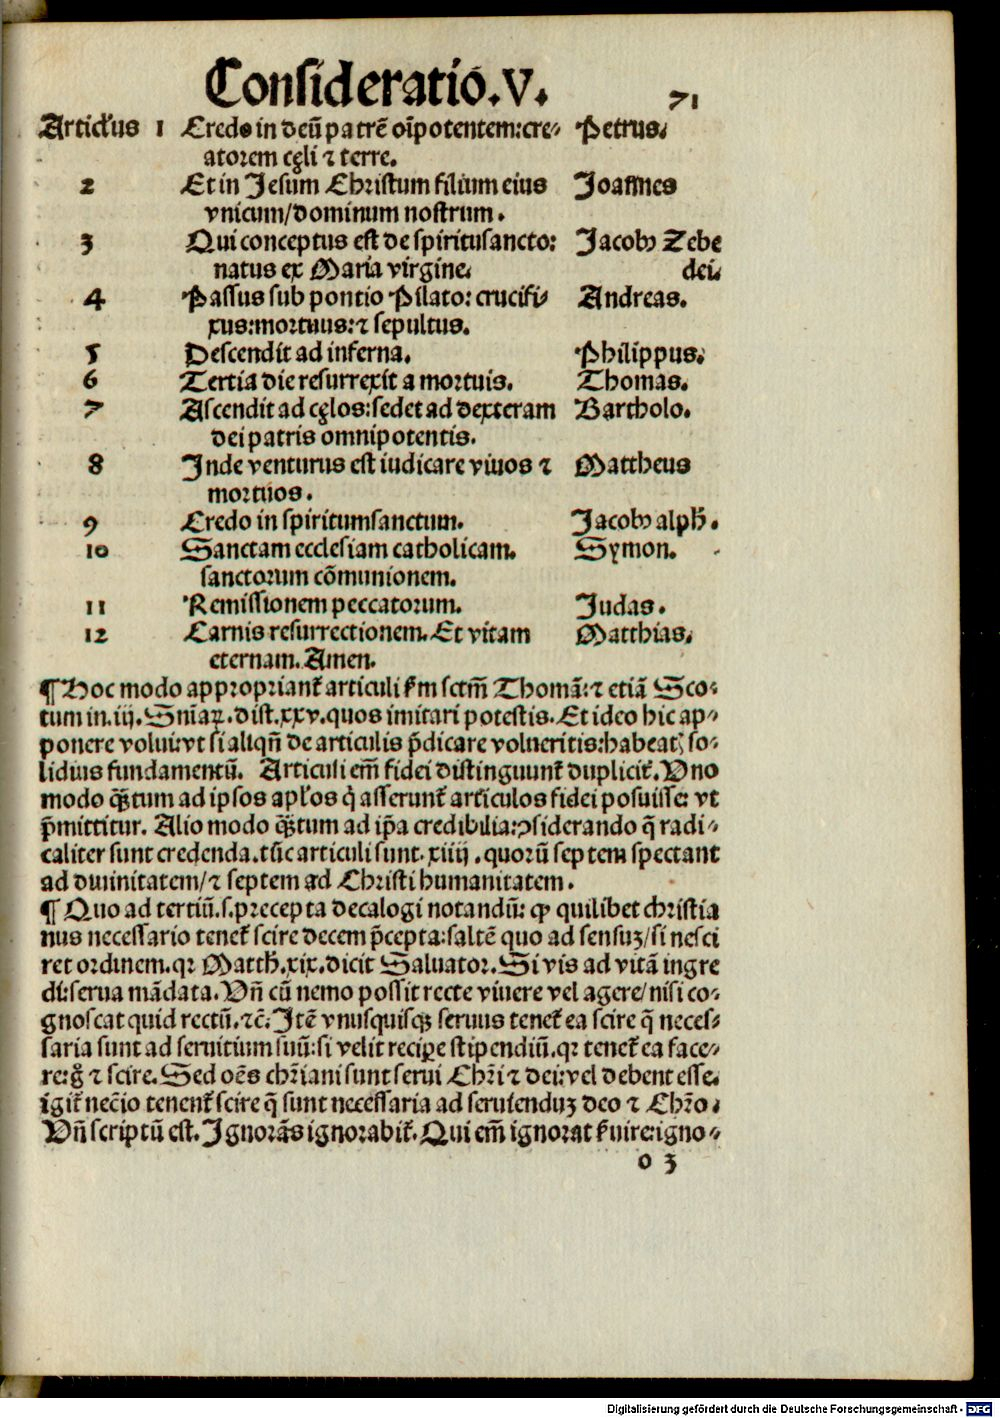 Consideratiō.V.
71
Articl'us 1 Credo in deū patrē oīpotentem:cre- Petrus.
atorem cęli ⁊ terre.
2 Et in Jesum Christum filium eius Joannes
vnicum/dominum nostrum.
3 Qui conceptus est de spiritusancto: Jacob' Zebe
natus ex Maria virgine. dei.
4 Passus sub pontio Pilato: crucifi- Andreas.
xus:mortuus:⁊ sepultus.
5 Descendit ad inferna. Philippus.
6 Tertia die resurrexit a mortuis. Thomas.
7 Ascendit ad cęlos:sedet ad dexteram Bartholo.
dei patris omnipotentis.
8 Inde venturus est iudicare viuos ⁊ Mattheus
mortuos.
9 Credo in spiritumsanctum. Jacob' alph.
10 Sanctam ecclesiam catholicam. Symon.
sanctorum cōmunionem.
11 Remissionem peccatorum. Judas.
12 Carnis resurrectionem. Et vitam Matthias.
eternam. Amen.
¶ Hoc modo appropriant' articuli s'm sctm̄ Thomā:⁊ etiā Sco-
tum in.iij. Sniaꝝ.dist.xxv.quos imitari potestis. Et ideo hic ap-
ponere volui:vt si aliqn̄ de articulis p̄dicare volueritis:habeat' so-
lidius fundamentū. Articuli em̄ fidei distinguunt' duplicit'. Vno
modo q̄ꝫtum ad ipsos apl'os q' asserunt' articulos fidei posuisse: vt
p̄mittitur. Alio modo q̄ꝫtum ad ip̄a credibilia:ↄsiderando q̄ radi-
caliter sunt credenda.tūc articuli sunt.xiiij.quorū septem spectant
ad diuinitatem/⁊ septem ad Christi humanitatem.
¶ Quo ad tertiū.s.precepta decalogi notandū: ꝙ quilibet christia
nus necessario tenet' scire decem p̄cepta:saltē quo ad sensuꝫ/si nesci
ret ordinem.qꝛ Matth.xix.dicit Saluator. Si vis ad vitā ingre
di:serua mādata. Vn̄ cū nemo possit recte viuere vel agere/nisi co-
gnoscat quid rectū.⁊c̄. Itē vnusquisqꝫ seruus tenet' ea scire q̄ neces-
saria sunt ad seruitium suū:si velit recipe stipendiū.qꝛ tenet' ea face-
re:g̊ ⁊ scire. Sed oēs chr̄iani sunt serui Chr̄i ⁊ dei:vel debent esse.
igit' necīo tenent' scire q̄ sunt necessaria ad seruienduꝫ deo ⁊ Chr̄o.
Vn̄ scriptū est. Ignorās ignorabit'. Qui em̄ ignorat s'uire:igno-
o 3
Digitalisierung gefördert durch die Deutsche Forschungsgemeinschaft - DFG